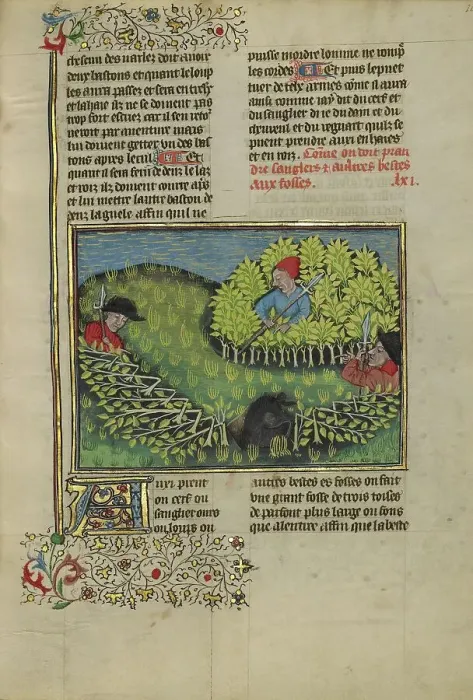 chascun des varlez doit auoir
deux bastons et quant le loup
les aura passes et sera en trese
et la haie ilz ne se doiuent pas
trop fort escrier car il sen reto
neroit par auenture mais
lui doiuent getter vn des bas
tons apres lenui Et
quant il sera feru dedenz le laz
et roiz ilz doiuent courre aps
et lui mettre lautre baston de
denz la guele affin qil ne
puisse mordre lomme ne romp̃
les cordes Et puis le puet
tuer de telx armes cõme il aura
ainsi comme iay dit du cerf et
du sanglier de ie du dain et du
cheureul et du regnart quilz se
pueent prendre auxi en haies
et en roiz. Cõme on doit pran
dre sanglers & aultres bestes
aux fosses. lxi.
Auxi prent
on cerf ou
sanglier ours
ou loups ou
aultres bestes es fosses on fait
vne grant fosse de trois toises
de parfont plus large ou fons
que alentree affin que la beste